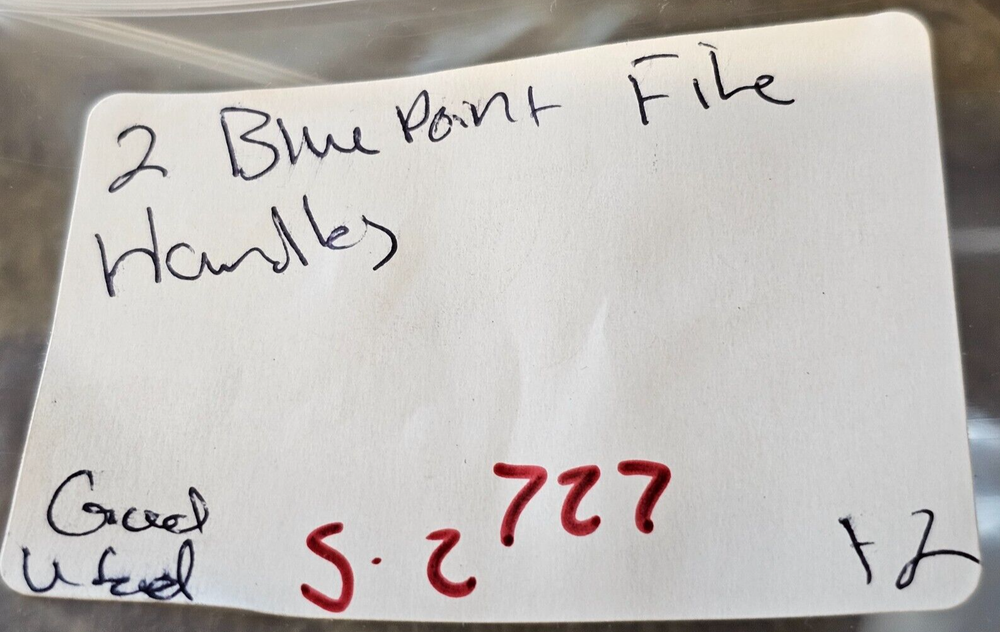 2 Blue Point File
Handles
Good
Used
S.2 727
+2